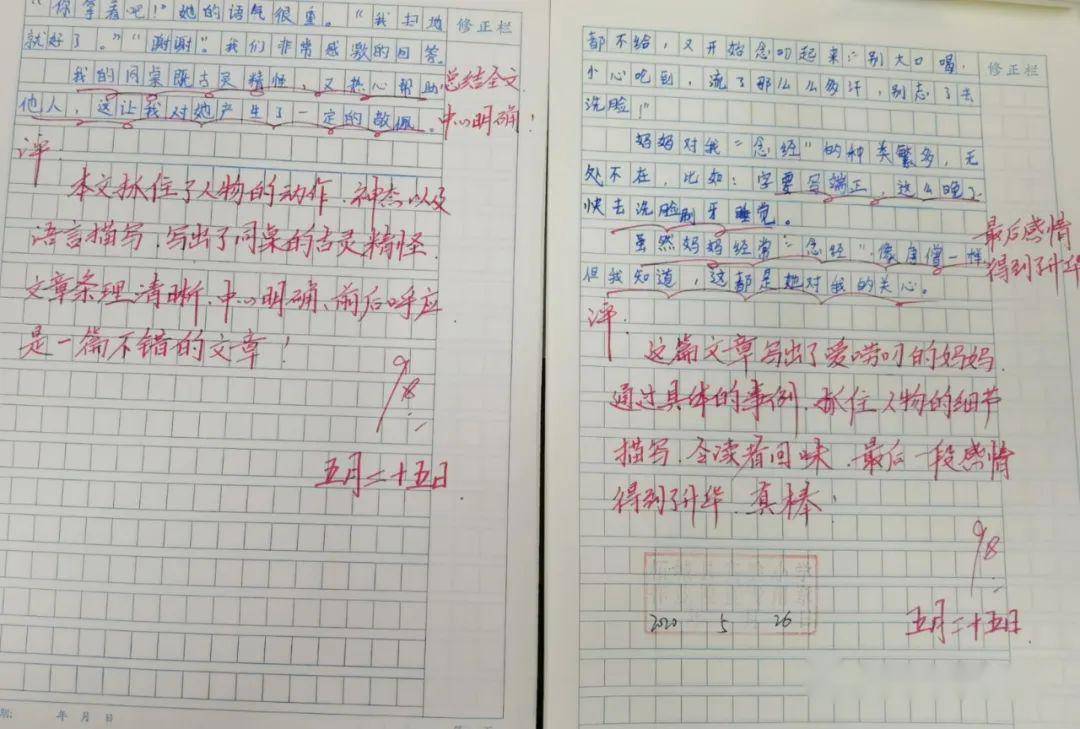 “你拿着吧!”她的语气很重。“我扫地
就好了。”“谢谢”。我们非常感激的回答。
我的同桌既古灵精怪,又热心帮助
他人,这让我对她产生了一定的敬佩。
修正栏
总结全文
中心明确!
评:
本文抓住了人物的动作、神态以及
语言描写,写出了同桌的古灵精怪.
文章条理清晰,中心明确、前后呼应
是一篇不错的文章!
98
五月二十五日
年 月 日
都不给,又开始念叨起来:“别大口喝,
小心呛到,流了那么么多汗,别忘了去
洗脸!”
妈妈对我“念经”的种类繁多,无
处不在,比如:字要写端正,这么晚了
快去洗脸刷牙睡觉。
虽然妈妈经常“念经”像唐僧一样
但我知道,这都是她对我的关心。
修正栏
最后感情
得到了升华
评:
这篇文章写出了爱唠叨的妈妈,
通过具体的事例,抓住人物的细节
描写,令读者回味,最后一段感情
得到了升华,真棒!
98
2020 5 26
五月二十五日